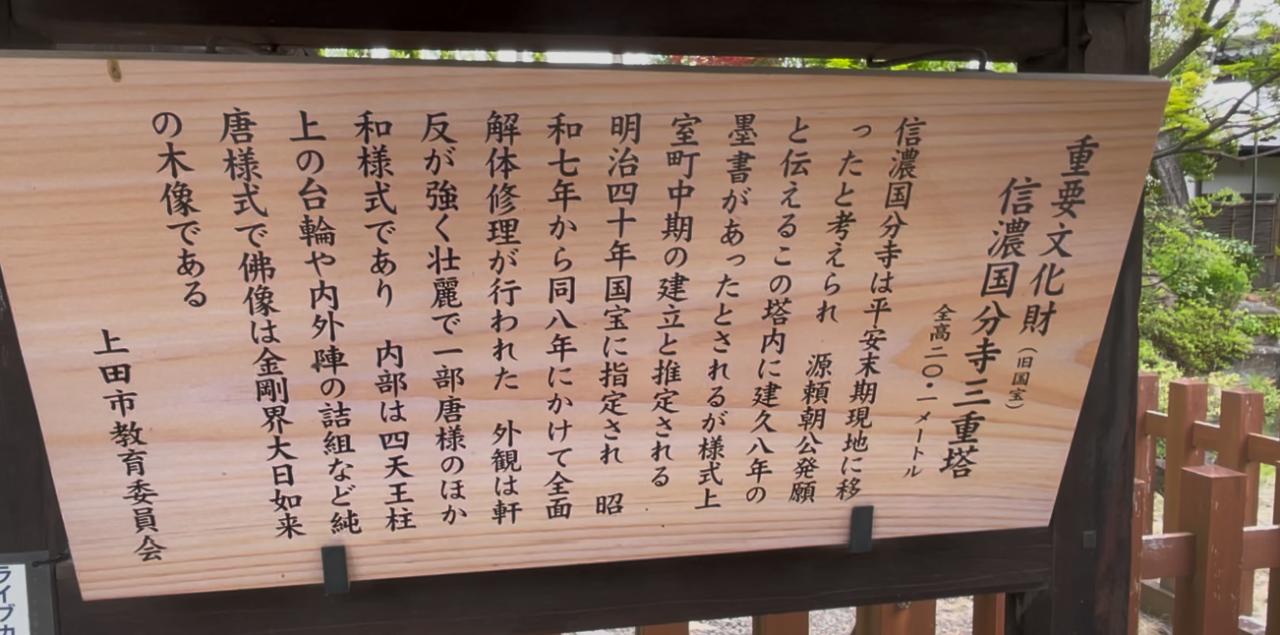 重要文化財（旧国宝）
信濃国分寺三重塔
全高二〇・一メートル
信濃国分寺は平安末期現地に移
ったと考えられ　源頼朝公発願
と伝えるこの塔内に建久八年の
墨書があったとされるが様式上
室町中期の建立と推定される
明治四十年国宝に指定され　昭
和七年から同八年にかけて全面
解体修理が行われた　外観は軒
反が強く壮麗で一部唐様のほか
和様式であり　内部は四天王柱
上の台輪や内外陣の詰組など純
唐様式で佛像は金剛界大日如来
の木像である
上田市教育委員会
ライブカ